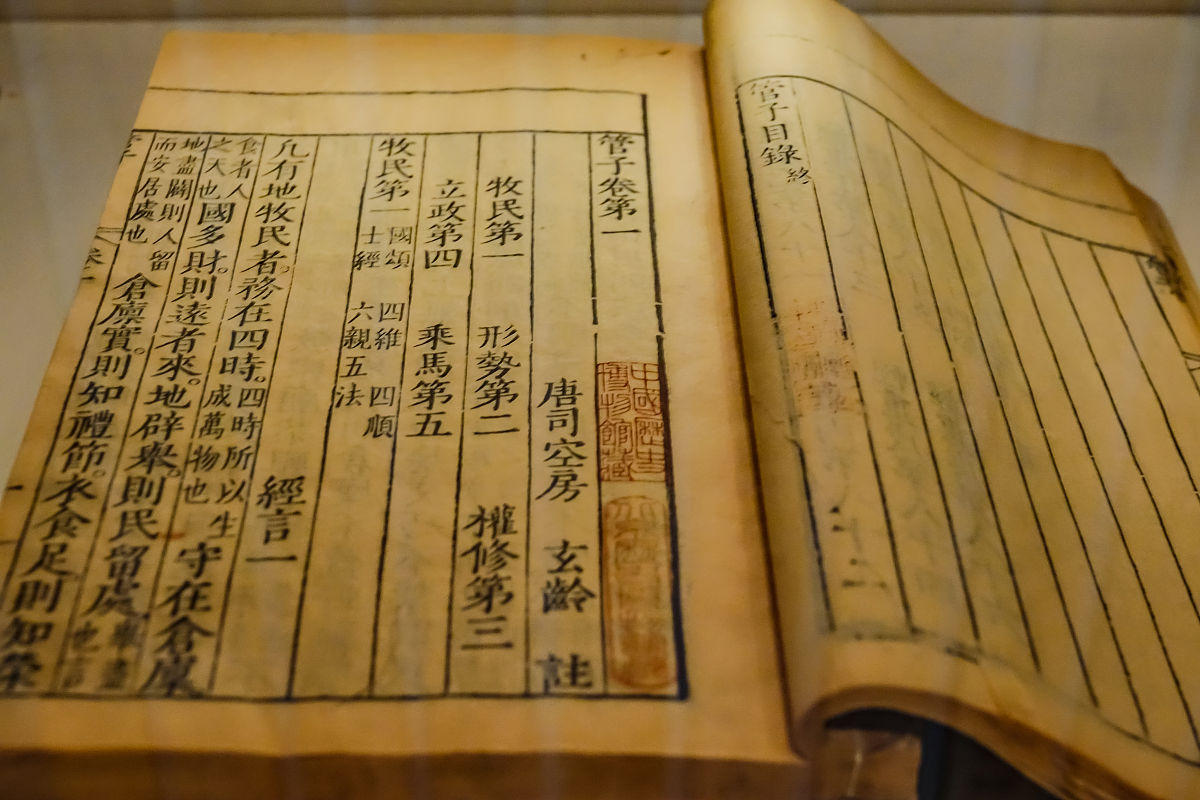 管子目錄終
管子卷第一
中國歷史
博物館藏
唐司空房 玄齡 註
牧民第一 形勢第二 權修第三
立政第四 乘馬第五
牧民第一 國頌 四維 四順 士經 六親五法
經言一
凡有地牧民者。務在四時。四時所以生成萬物也 守在倉廩
食者人之天也 國多財。則遠者來。地辟舉。則民留處。舉盡也言
地盡闢則人留而安居處也 倉廩實。則知禮節。衣食足。則知榮